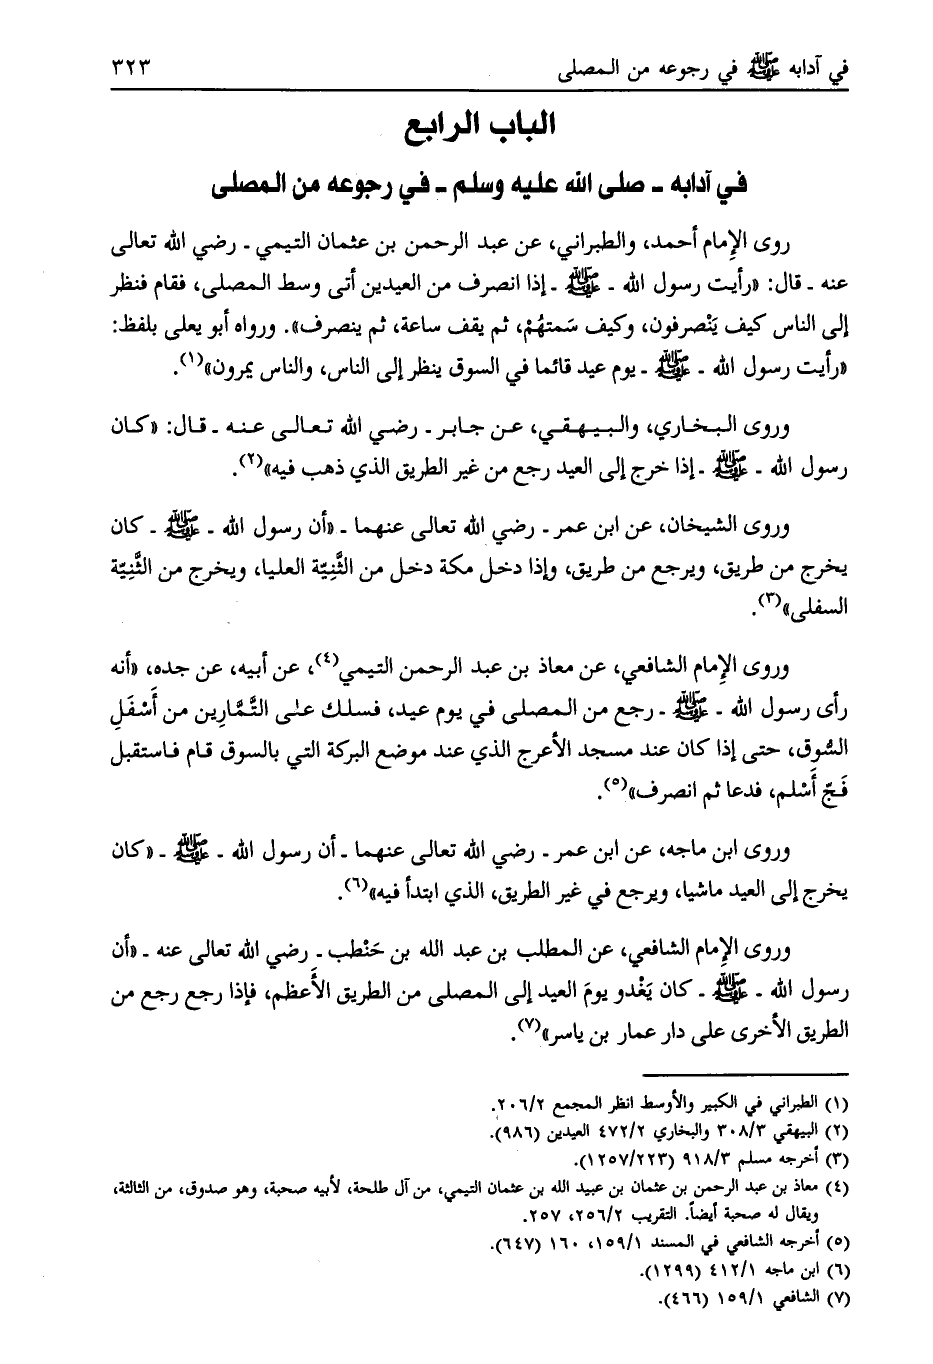 في آدابه ﷺ في رجوعه من المصلى ٣٢٣
الباب الرابع
في آدابه - صلى الله عليه وسلم - في رجوعه من المصلى
روى الإمام أحمد، والطبراني، عن عبد الرحمن بن عثمان التيمي - رضي الله تعالى
عنه - قال: «رأيت رسول الله - ﷺ - إذا انصرف من العيدين أتى وسط المصلى، فقام فنظر
إلى الناس كيف يَنْصرفون، وكيف سَمتهُمْ، ثم يقف ساعة، ثم ينصرف». ورواه أبو يعلى بلفظ:
«رأيت رسول الله - ﷺ - يوم عيد قائما في السوق ينظر إلى الناس، والناس يمرون»(١).
وروى البخاري، والبيهقي، عن جابر - رضي الله تعالى عنه - قال: «كان
رسول الله - ﷺ - إذا خرج إلى العيد رجع من غير الطريق الذي ذهب فيه»(٢).
وروى الشيخان، عن ابن عمر - رضي الله تعالى عنهما - «أن رسول الله - ﷺ - كان
يخرج من طريق، ويرجع من طريق، وإذا دخل مكة دخل من الثَّنِيّة العليا، ويخرج من الثَّنِيّة
السفلى»(٣).
وروى الإمام الشافعي، عن معاذ بن عبد الرحمن التيمي(٤)، عن أبيه، عن جده، «أنه
رأى رسول الله - ﷺ - رجع من المصلى في يوم عيد، فسلك على التَّمَّارِين من أَسْفَلِ
السُّوق، حتى إذا كان عند مسجد الأعرج الذي عند موضع البركة التي بالسوق قام فاستقبل
فَجّ أَسْلم، فدعا ثم انصرف»(٥).
وروى ابن ماجه، عن ابن عمر - رضي الله تعالى عنهما - أن رسول الله - ﷺ - «كان
يخرج إلى العيد ماشيا، ويرجع في غير الطريق، الذي ابتدأ فيه»(٦).
وروى الإمام الشافعي، عن المطلب بن عبد الله بن حَنْطب - رضي الله تعالى عنه - «أن
رسول الله - ﷺ - كان يَغْدو يومَ العيد إلى المصلى من الطريق الأَعظم، فإذا رجع رجع من
الطريق الأخرى على دار عمار بن ياسر»(٧).
(١) الطبراني في الكبير والأوسط انظر المجمع ٢٠٦/٢.
(٢) البيهقي ٣٠٨/٣ والبخاري ٤٧٢/٢ العيدين (٩٨٦).
(٣) أخرجه مسلم ٩١٨/٣ (١٢٥٧/٢٢٣).
(٤) معاذ بن عبد الرحمن بن عثمان بن عبيد الله بن عثمان التيمي، من آل طلحة، لأبيه صحبة، وهو صدوق، من الثالثة،
ويقال له صحبة أيضاً. التقريب ٢٥٦/٢، ٢٥٧.
(٥) أخرجه الشافعي في المسند ١٥٩/١، ١٦٠ (٦٤٧).
(٦) ابن ماجه ٤١٢/١ (١٢٩٩).
(٧) الشافعي ١٥٩/١ (٤٦٦).